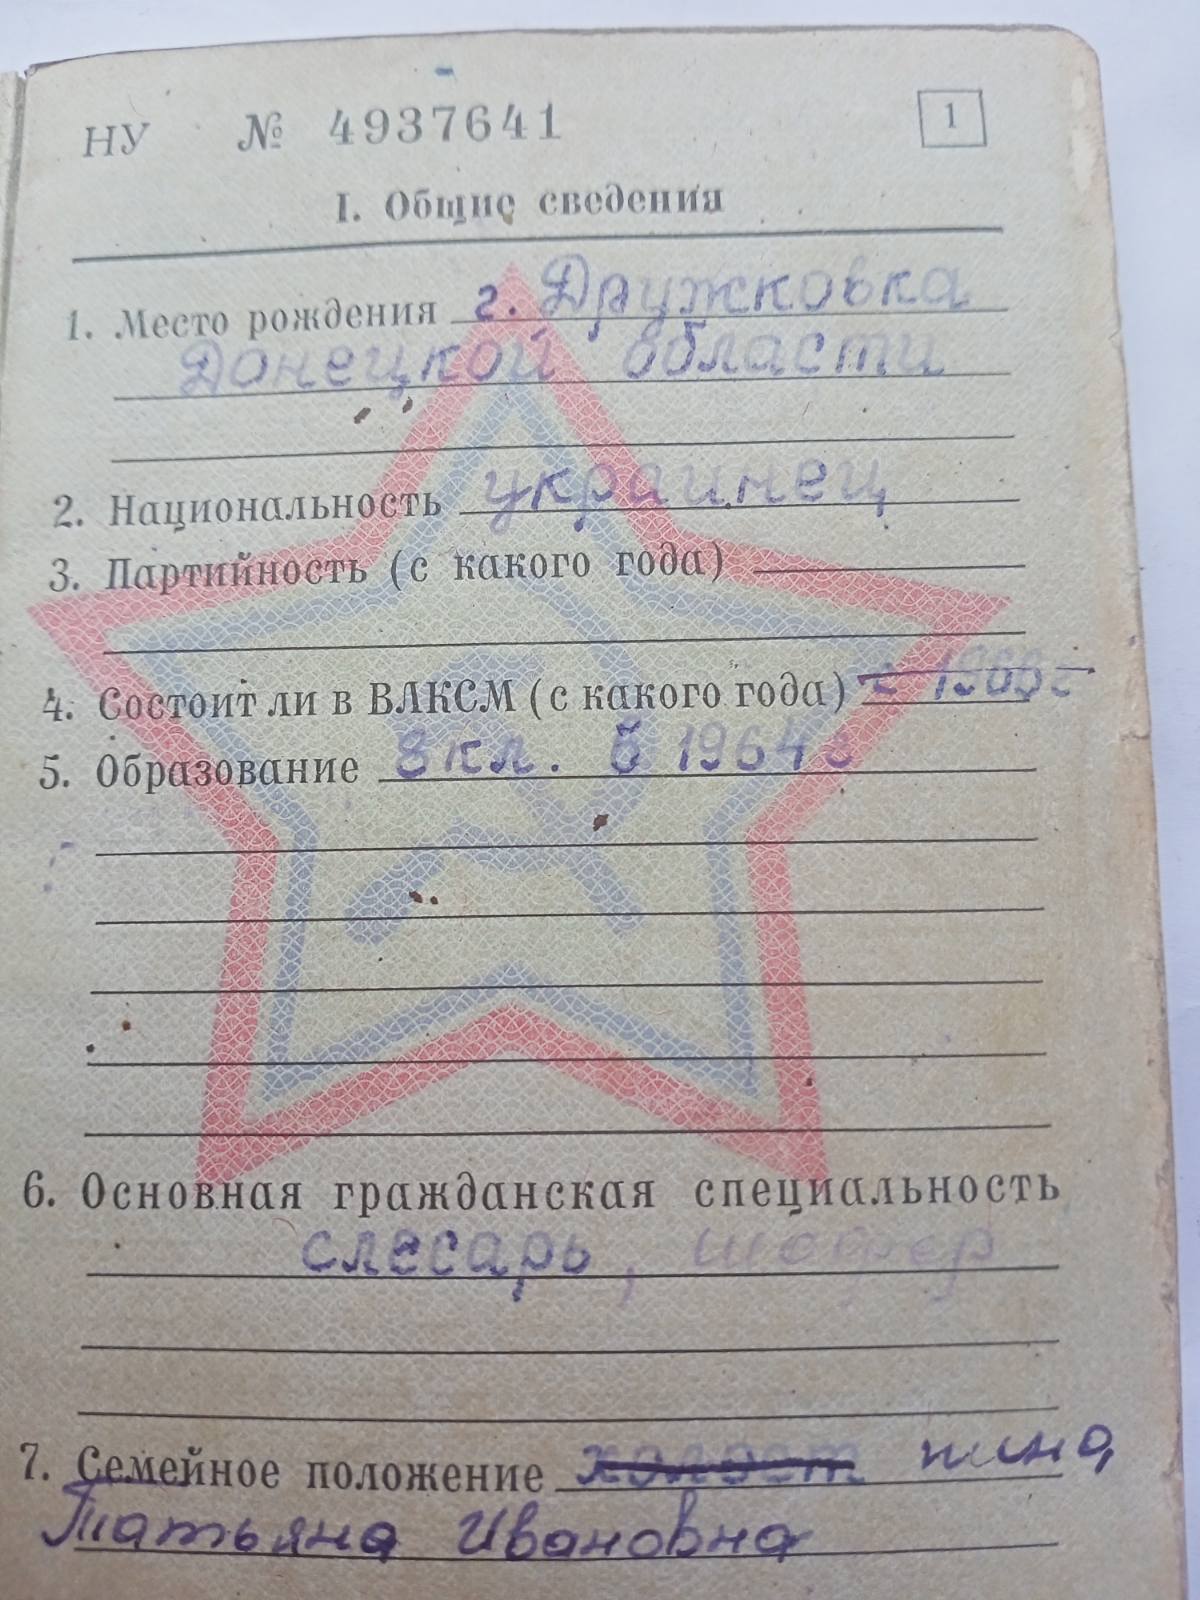 НУ № 4937641 1
I. Общие сведения
1. Место рождения г. Дружковка
Донецкой области
2. Национальность украинец
3. Партийность (с какого года)
4. Состоит ли в ВЛКСМ (с какого года) с 1966 г
5. Образование 8 кл. в 1964 г
6. Основная гражданская специальность
слесарь, шофер
7. Семейное положение холост жена
Татьяна Ивановна